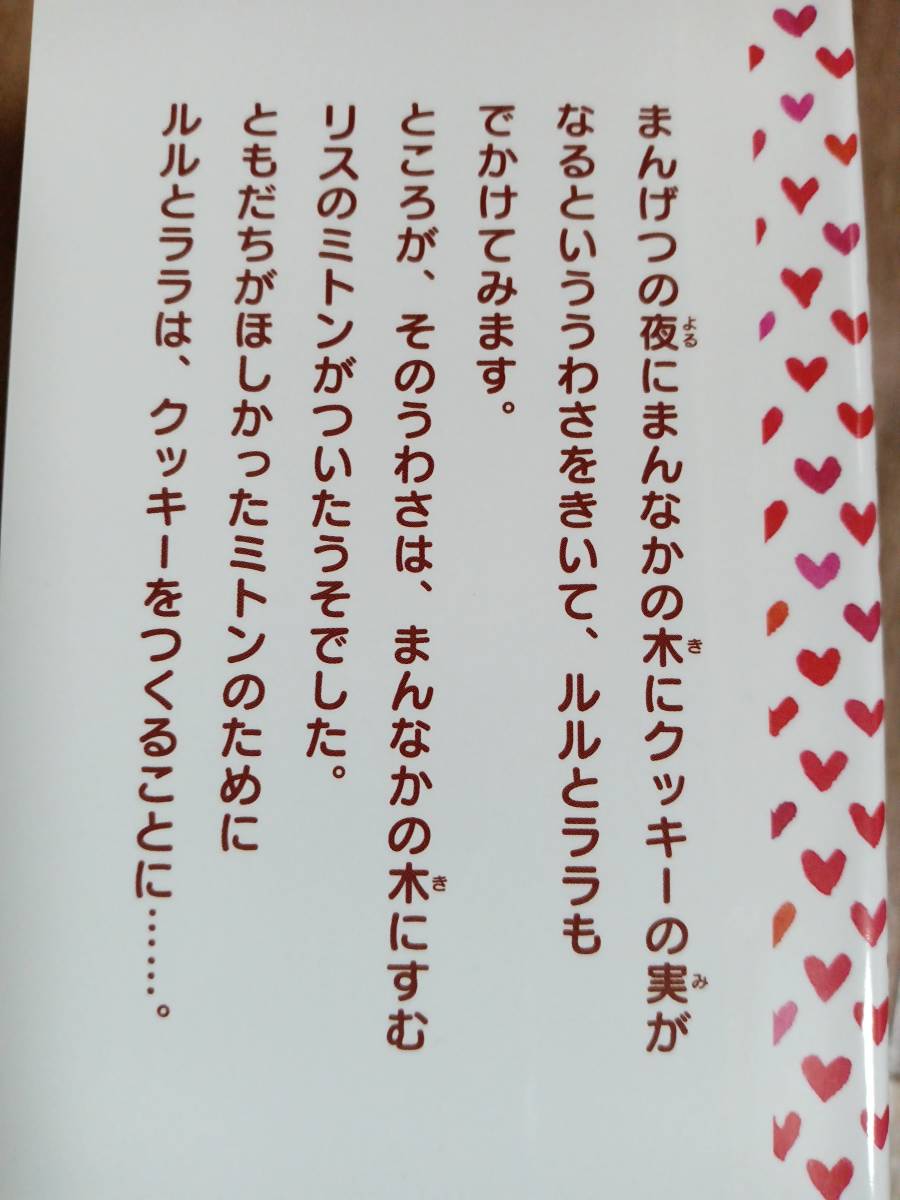 まんげつの夜にまんなかの木にクッキーの実が
なるといううわさをきいて、ルルとララも
でかけてみます。
ところが、そのうわさは、まんなかの木にすむ
リスのミトンがついたうそでした。
ともだちがほしかったミトンのために
ルルとララは、クッキーをつくることに……。